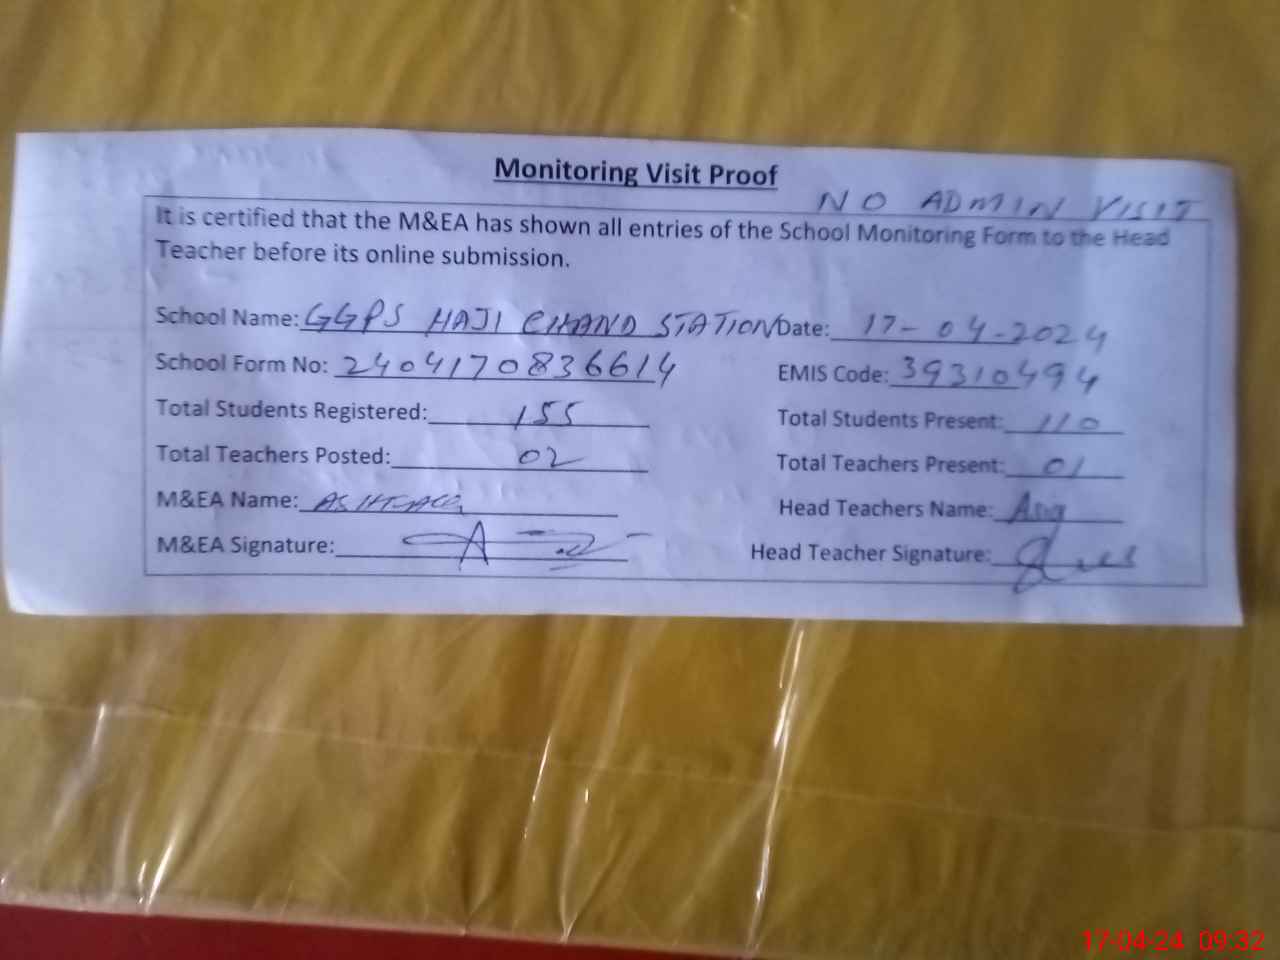 Monitoring Visit Proof
NO ADMIN VISIT
It is certified that the M&EA has shown all entries of the School Monitoring Form to the Head
Teacher before its online submission.
School Name: GGPS HAJI CHAND STATION Date: 17-04-2024
School Form No: 2404170836614 EMIS Code: 39310494
Total Students Registered: 155 Total Students Present: 110
Total Teachers Posted: 02 Total Teachers Present: 01
M&EA Name: Head Teachers Name:
M&EA Signature: Head Teacher Signature:
17-04-24 09:32